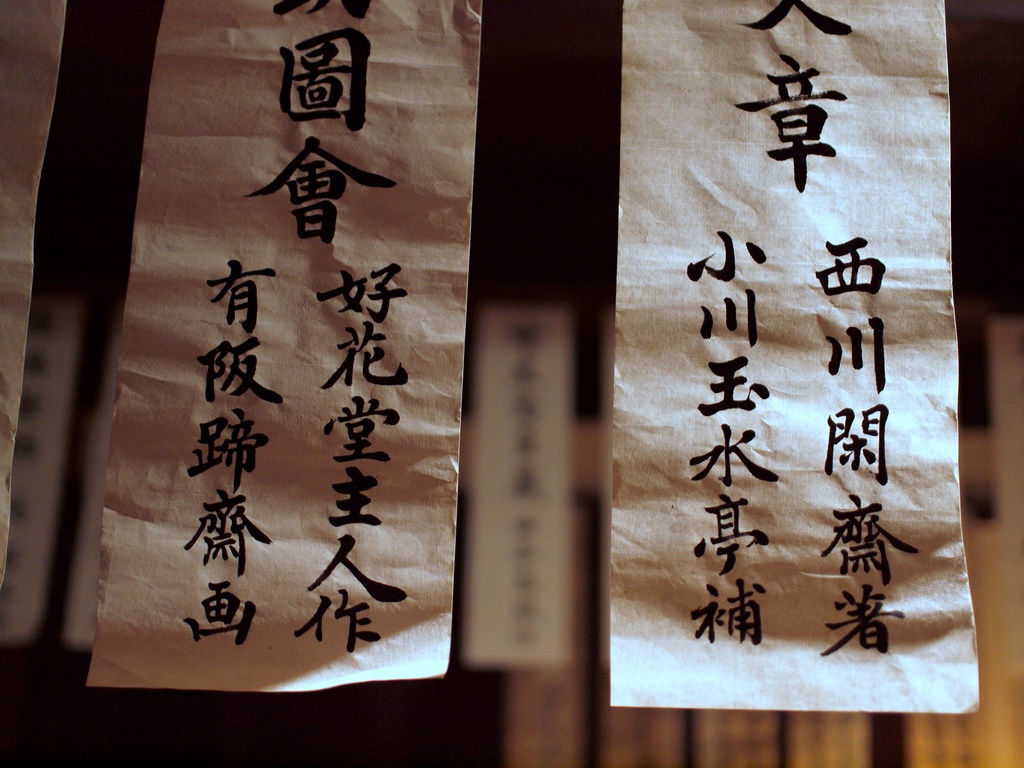 章
西川閑齋著
小川玉水亭補
圖會
好花堂主人作
有阪蹄齋画